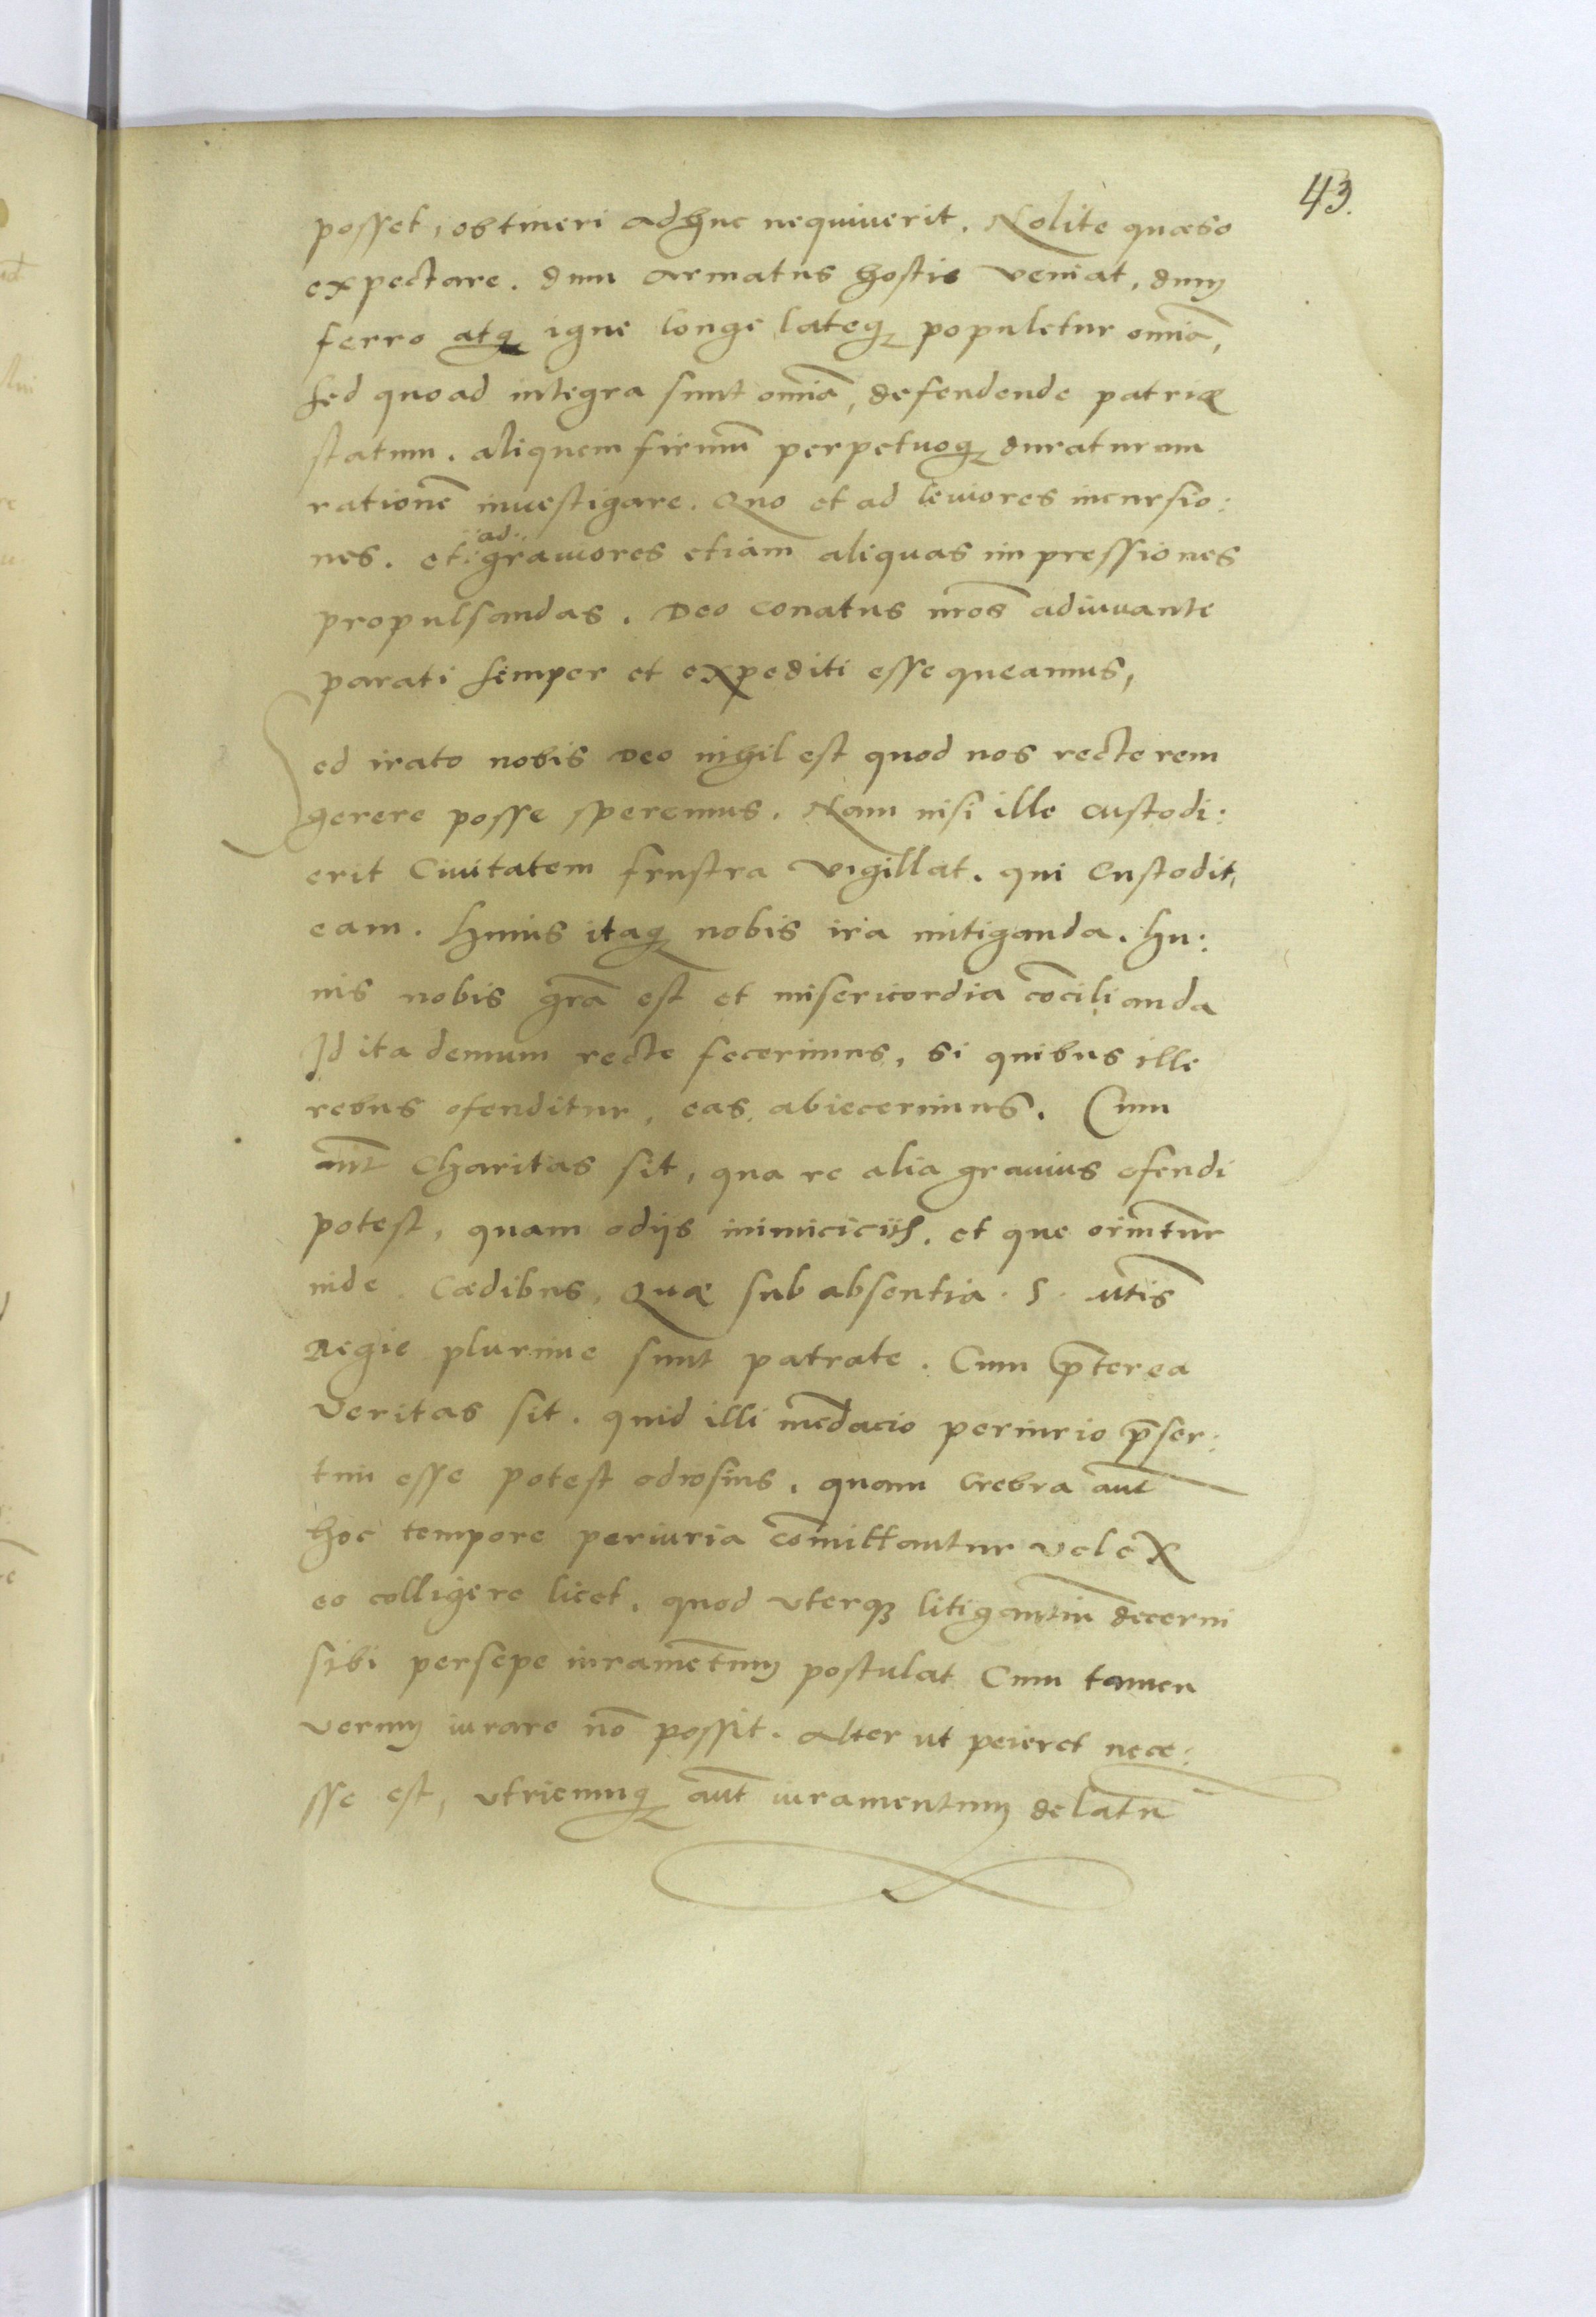 43.
posset, obtineri adhuc nequiuerit. Nolite quaeso
expectare. dum armatus hostis veniat, dum
ferro atq; igne longe lateq; populetur omīa,
sed quoad integra sunt omīa, defendende patriæ
statum. aliquem firmū perpetuoq; duraturam
rationē inuestigare. Quo et ad leuiores incursio:
nes. et ad grauiores etiam aliquas impressiones
propulsandas. Deo conatus nr̄os adiuuante
parati semper et expediti esse queamus,
Sed irato nobis Deo nihil est quod nos recte rem
gerere posse speremus. Nam nisi ille custodi:
erit Ciuitatem frustra vigillat. qui Custodit,
eam. Huius itaq; nobis ira mitiganda. hu:
ius nobis gr̄a est et misericordia cōcilianda
Id ita demum recte fecerimus, si quibus ille
rebus ofenditur, eas abiecerimus. Cum
aut̄ Charitas sit, qua re alia grauius ofendi
potest, quam odijs inimicicijs. et que oriūtur
inde. Cædibus, Quæ sub absentia. S. Mtis
Regie plurime sunt patrate. Cum p̄terea
Veritas sit. quid illi mēdacio periurio p̄ser:
tim esse potest odiosius. quam Crebra aut̄
hoc tempore periuria cōmittantur vel ex
eo colligere licet. quod vterq; litigantiū decerni
sibi persepe iuramētum postulat Cum tamen
verum iurare nō possit. Alter ut peieret nece:
sse est, vtricunq; aut̄ iuramentum delatū